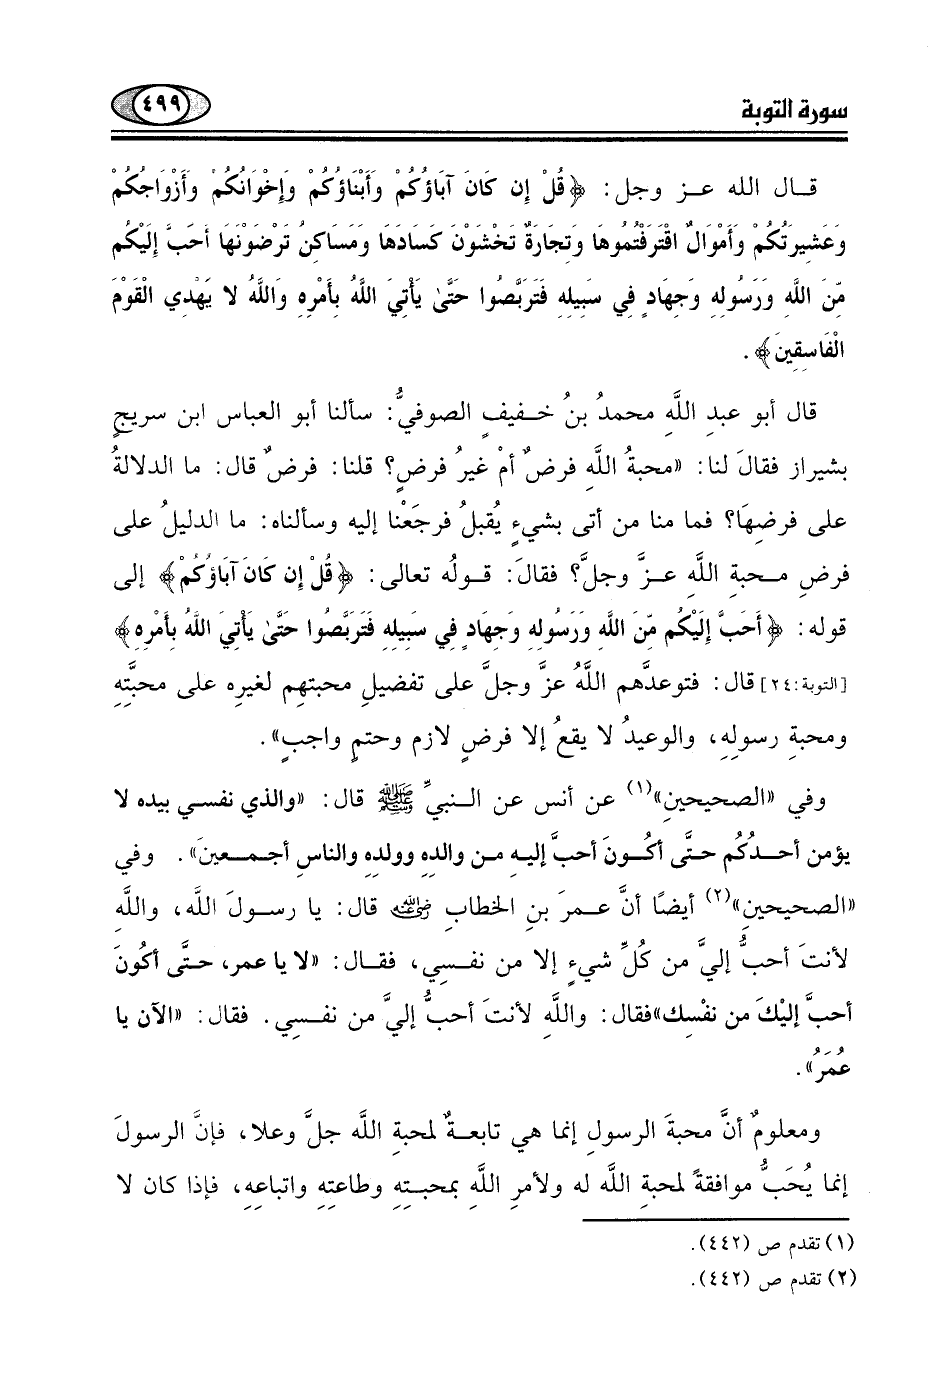 سورة التوبة
٤٩٩
قال الله عز وجل: ﴿قُلْ إِن كَانَ آبَاؤُكُمْ وَأَبْنَاؤُكُمْ وَإِخْوَانُكُمْ وَأَزْوَاجُكُمْ
وَعَشِيرَتُكُمْ وَأَمْوَالٌ اقْتَرَفْتُمُوهَا وَتِجَارَةٌ تَخْشَوْنَ كَسَادَهَا وَمَسَاكِنُ تَرْضَوْنَهَا أَحَبَّ إِلَيْكُم
مِّنَ اللَّهِ وَرَسُولِهِ وَجِهَادٍ فِي سَبِيلِهِ فَتَرَبَّصُوا حَتَّىٰ يَأْتِيَ اللَّهُ بِأَمْرِهِ وَاللَّهُ لا يَهْدِي الْقَوْمَ
الْفَاسِقِينَ﴾.
قال أبو عبدِ اللَّهِ محمدُ بنُ خفيفٍ الصوفيُّ: سألنا أبو العباس ابن سريجٍ
بشيراز فقالَ لنا: «محبةُ اللَّهِ فرضٌ أمْ غيرُ فرضٍ؟ قلنا: فرضٌ قال: ما الدلالةُ
على فرضِهَا؟ فما منا من أتى بشيءٍ يُقبلُ فرجَعْنا إليه وسألناه: ما الدليلُ على
فرضِ محبةِ اللَّهِ عزَّ وجلَّ؟ فقالَ: قولُه تعالى: ﴿قُلْ إِن كَانَ آبَاؤُكُمْ﴾ إلى
قوله: ﴿أَحَبَّ إِلَيْكُم مِّنَ اللَّهِ وَرَسُولِهِ وَجِهَادٍ فِي سَبِيلِهِ فَتَرَبَّصُوا حَتَّىٰ يَأْتِيَ اللَّهُ بِأَمْرِهِ﴾
[التوبة: ٢٤] قال: فتوعدَّهم اللَّهُ عزَّ وجلَّ على تفضيلِ محبتهِم لغيرِه على محبَّتِهِ
ومحبةِ رسولِهِ، والوعيدُ لا يقعُ إلا فرضٍ لازمٍ وحتمٍ واجبٍ».
وفي «الصحيحينِ»(١) عن أنس عن النبيِّ ﷺ قال: «والذي نفسي بيده لا
يؤمن أحدُكُم حتَّى أكُونَ أحبَّ إليه من والدِه وولدِه والناسِ أجمعينَ». وفي
«الصحيحينِ»(٢) أيضًا أنَّ عمرَ بنِ الخطابِ رضي الله عنه قال: يا رسولَ اللَّه، واللَّهِ
لأنتَ أحبُّ إليَّ من كُلِّ شيءٍ إلا من نفسِي، فقال: «لا يا عمر، حتَّى أكونَ
أحبَّ إليْكَ من نفْسِك» فقال: واللَّهِ لأنتَ أحبُّ إليَّ من نفسِي. فقال: «الآن يا
عُمَرُ».
ومعلومٌ أنَّ محبةَ الرسولِ إنما هي تابعةٌ لمحبةِ اللَّه جلَّ وعلا، فإنَّ الرسولَ
إنما يُحَبُّ موافقةً لمحبةِ اللَّه له ولأمرِ اللَّهِ بمحبتِهِ وطاعتِهِ واتباعِهِ، فإذا كان لا
(١) تقدم ص (٤٤٢).
(٢) تقدم ص (٤٤٢).